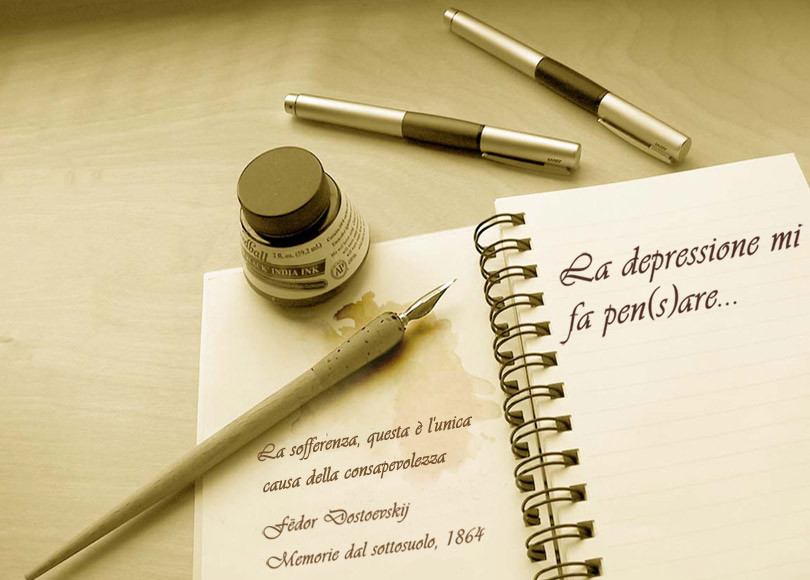 2 fl. oz. (59.2 mL)
INDIA INK
AP
La depressione mi
fa pen(s)are...
La sofferenza, questa è l'unica
causa della consapevolezza
Fëdor Dostoevskij
Memorie dal sottosuolo, 1864